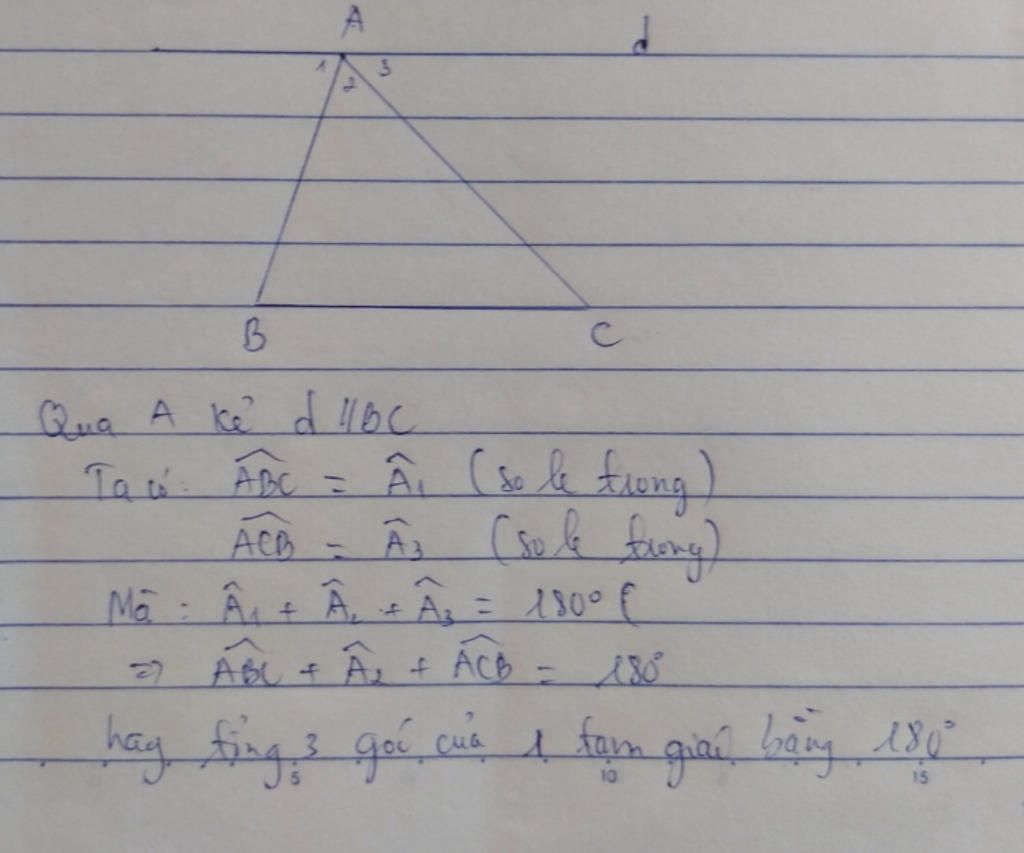 A
d
1
2
3
B
C
Qua A kẻ d // BC
Ta có: \widehat{ABC} = Â₁ (so le trong)
\widehat{ACB} = Â₃ (so le trong)
Mà: Â₁ + Â₂ + Â₃ = 180° (
=> \widehat{ABC} + Â₂ + \widehat{ACB} = 180°
hay tổng 3 góc của 1 tam giác bằng 180°
5
10
15